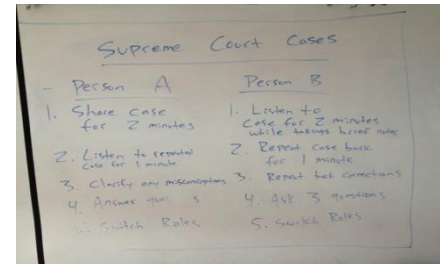 Supreme Court Cases
- Person A
1. Share case
for 2 minutes
2. Listen to repeated
case for 1 minute
3. Clarify any misconceptions
4. Answer
5. Switch Roles
Person B
1. Listen to
case for 2 minutes
while takings brief notes
2. Repeat case back
for 1 minute
3. Repeat back corrections
4. Ask 3 questions
5. Switch Roles